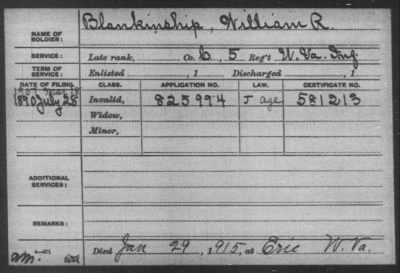 NAME OF SOLDIER: Blankinship, William R.
SERVICE: Late rank, Co. C, 5 Reg't W. Va. Inf
TERM OF SERVICE: Enlisted , 1 Discharged , 1
DATE OF FILING. CLASS. APPLICATION NO. LAW. CERTIFICATE NO.
1890 July 28 Invalid, 825994 J age 581213
Widow,
Minor,
ADDITIONAL SERVICES:
REMARKS:
Died Jan 29, 1915, at Eric W. Va.